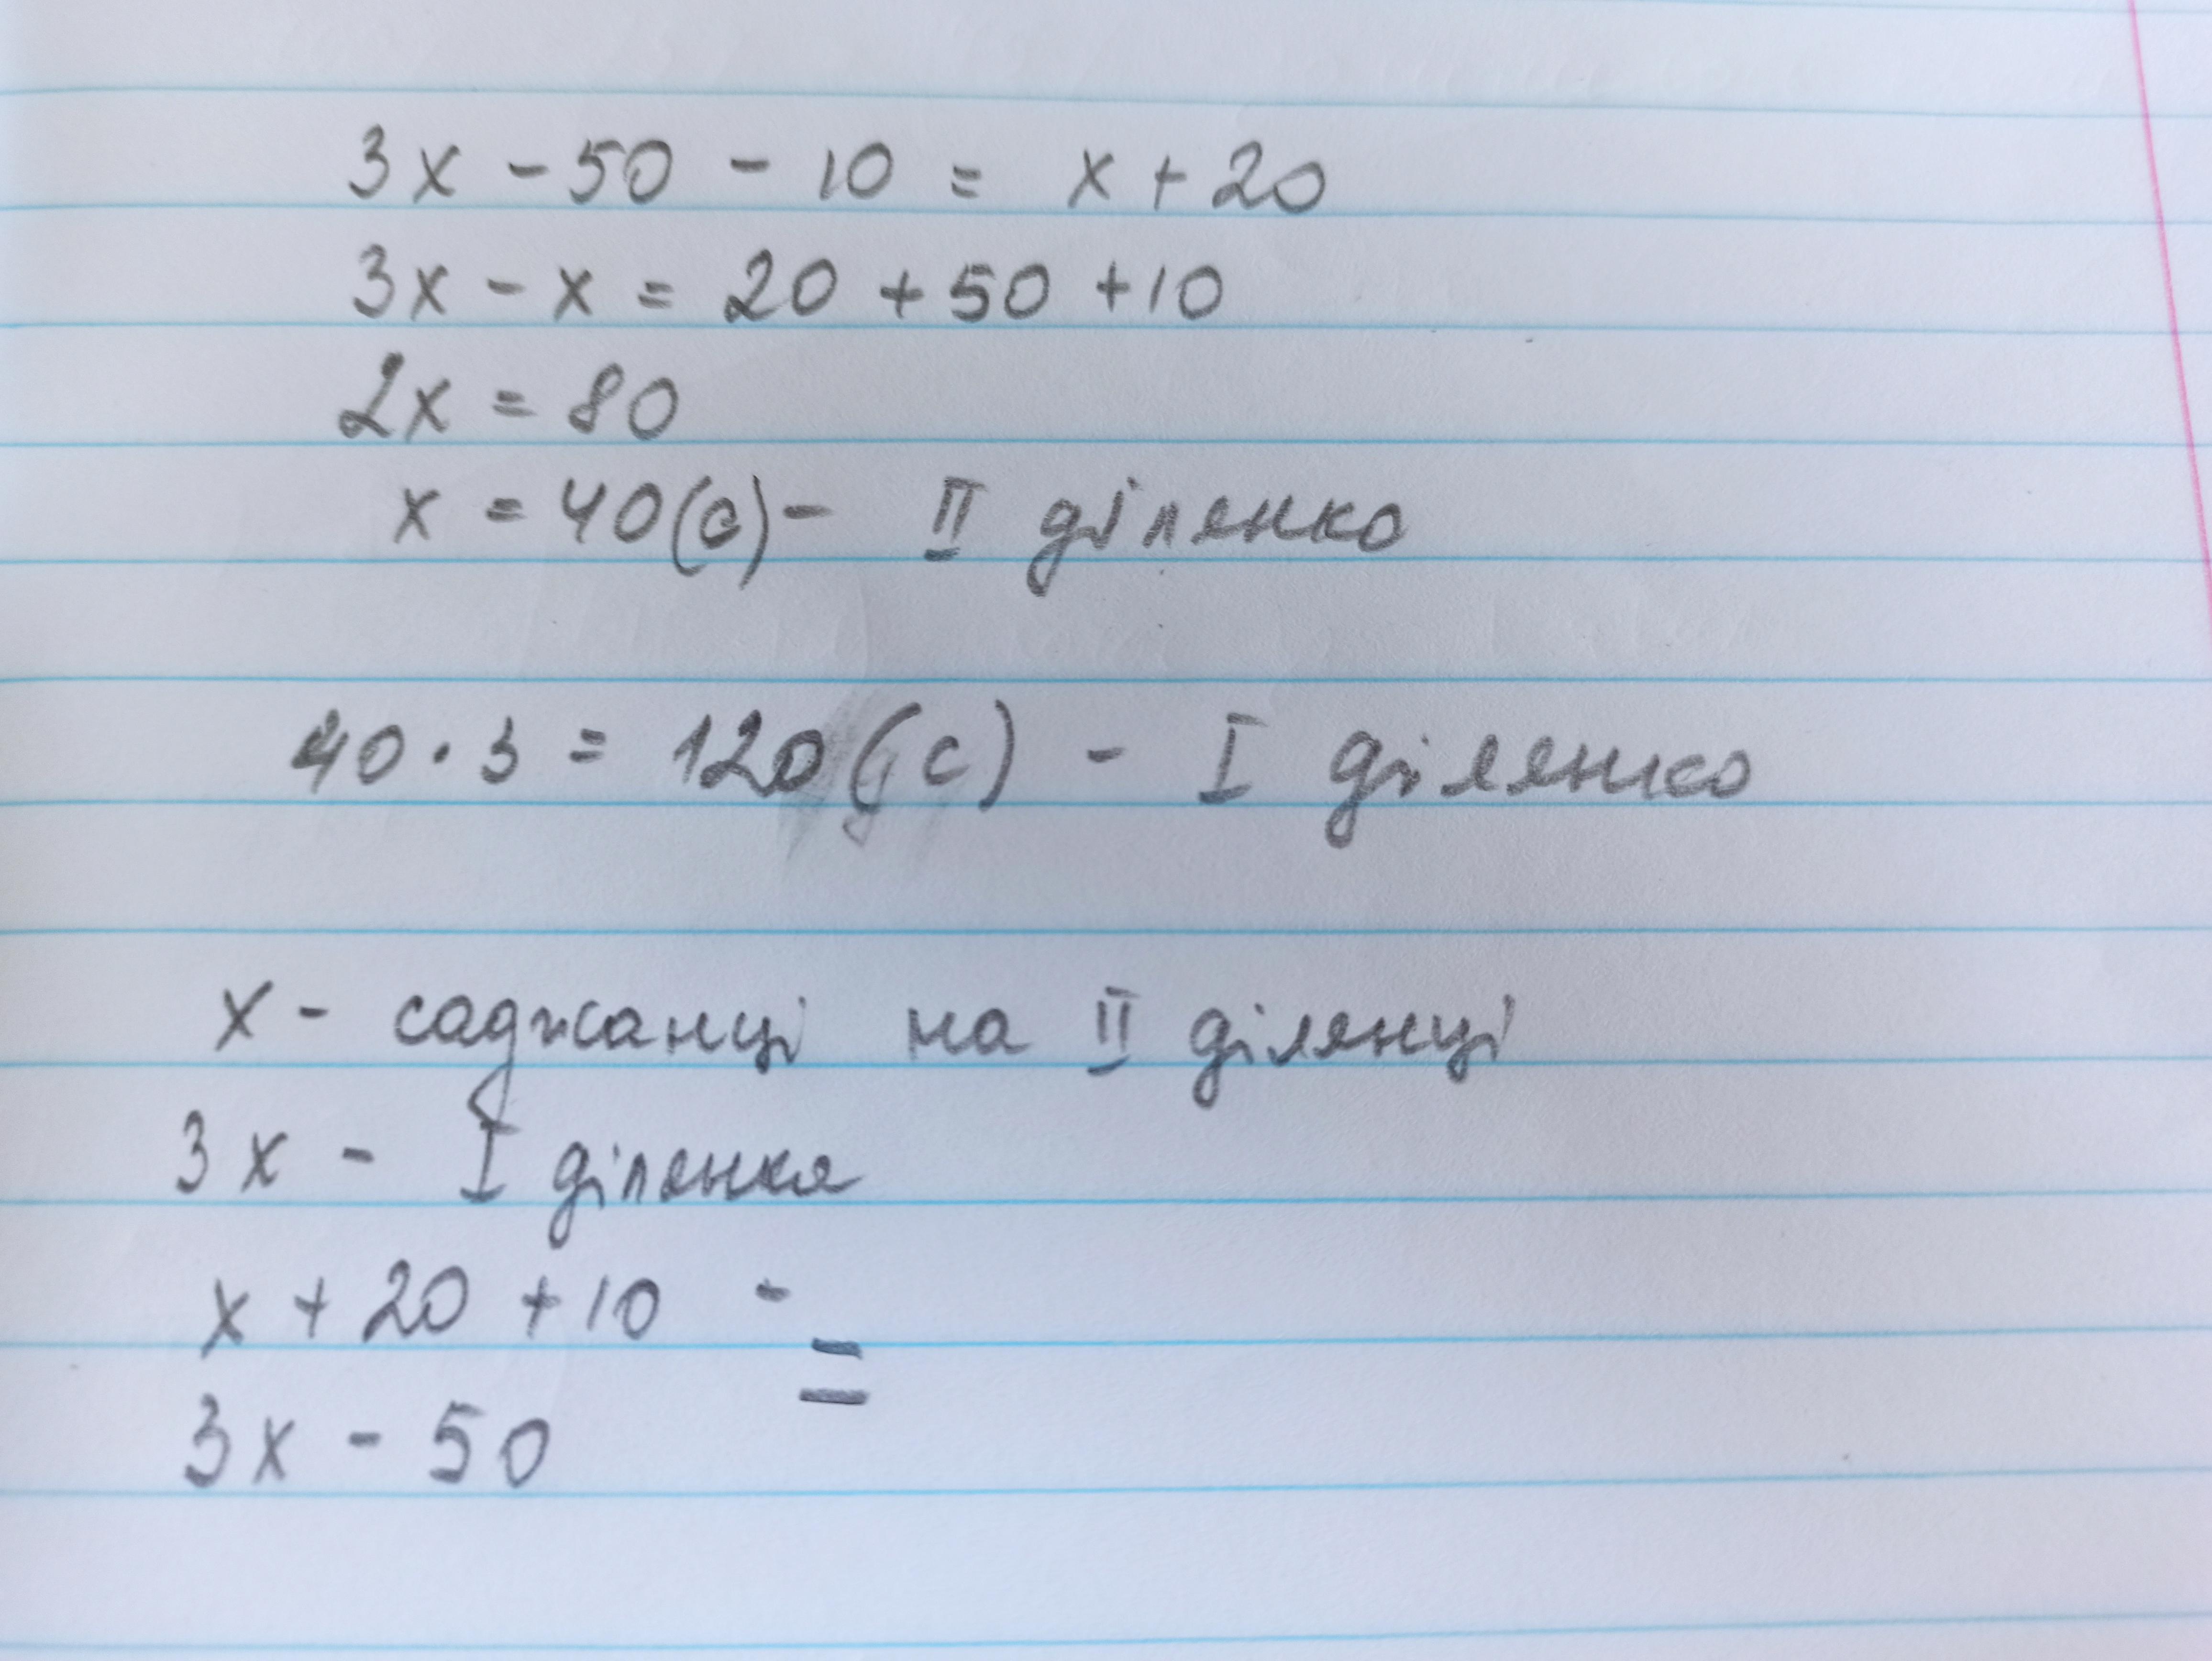 3x - 50 - 10 = x + 20
3x - x = 20 + 50 + 10
2x = 80
x = 40(с) - II ділянка
40 · 3 = 120 (с) - I ділянка
x - саджанці на II ділянці
3x - I ділянка
x + 20 + 10 -
=
3x - 50